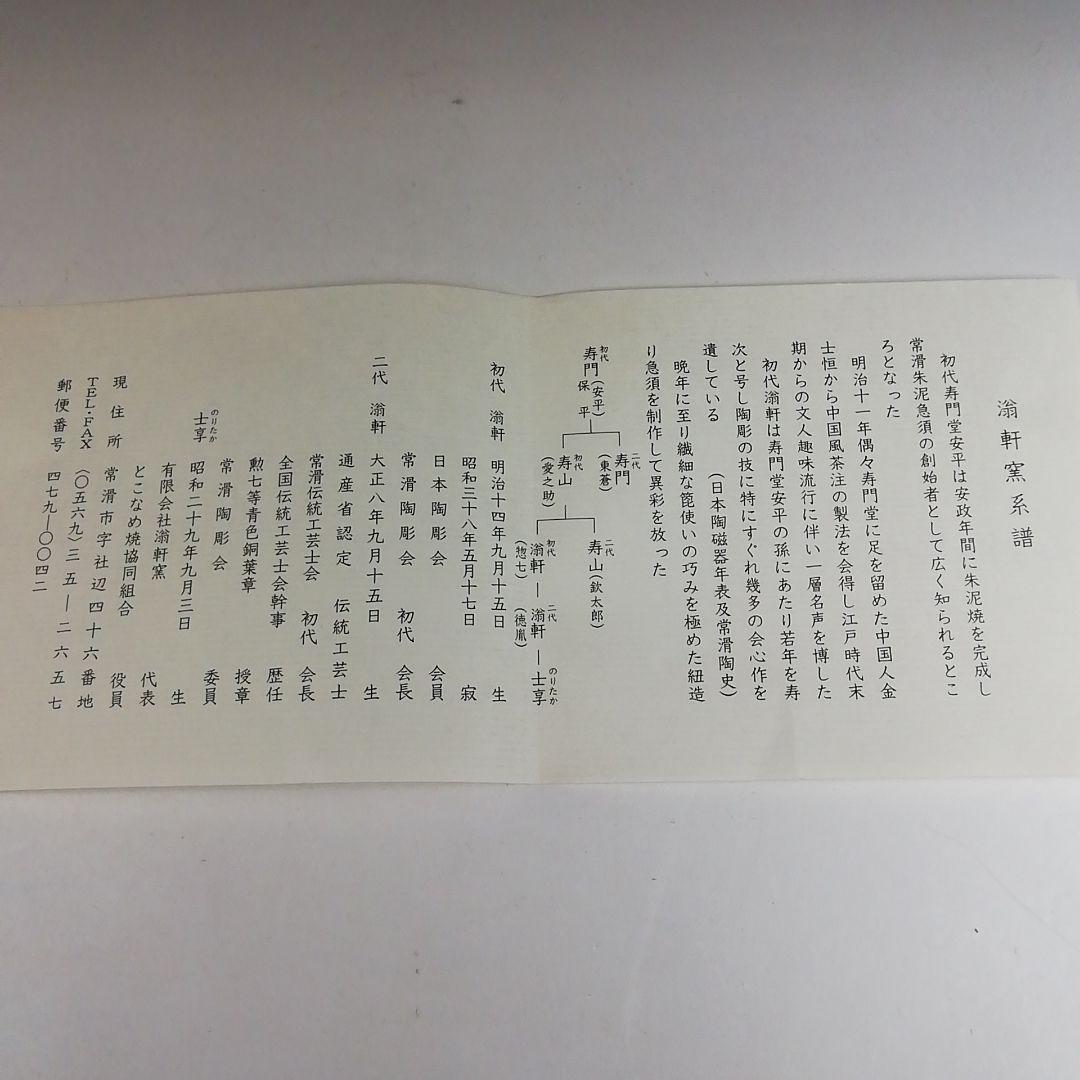 滃軒窯系譜
初代寿門堂安平は安政年間に朱泥焼を完成し
常滑朱泥急須の創始者として広く知られるとこ
ろとなった
明治十一年偶々寿門堂に足を留めた中国人金
士恒から中国風茶注の製法を会得し江戸時代末
期からの文人趣味流行に伴い一層名声を博した
初代滃軒は寿門堂安平の孫にあたり若年を寿
次と号し陶彫の技に特にすぐれ幾多の会心作を
遺している （日本陶磁器年表及常滑陶史）
晩年に至り繊細な箆使いの巧みを極めた紐造
り急須を制作して異彩を放った
初代 寿門（安平） 保平
二代 寿門（東蒼）
初代 寿山（愛之助）
二代 寿山（欽太郎）
初代 滃軒（惣七）― 二代 滃軒（徳胤）― 士享 のりたか
初代 滃軒 明治十四年九月十五日 生
昭和三十八年五月十七日 寂
日本陶彫会 会員
常滑陶彫会 初代 会長
二代 滃軒 大正八年九月十五日 生
通産省認定 伝統工芸士
常滑伝統工芸士会 初代 会長
全国伝統工芸士会幹事 歴任
勲七等青色銅葉章 授章
常滑陶彫会 委員
士享 のりたか 昭和二十九年九月三日 生
有限会社滃軒窯 代表
とこなめ焼協同組合 役員
現住所 常滑市字社辺四十六番地
TEL・FAX （〇五六九）三五―二六五七
郵便番号 四七九―〇〇四二